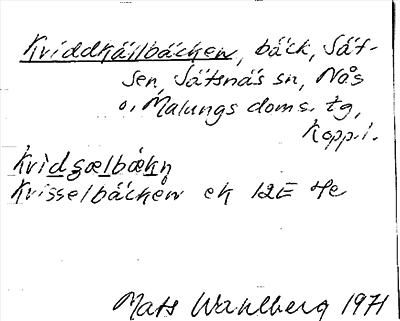 Kviddkällbäcken, bäck, Sät-
sen, Sätsnäs sn, Nås
o. Malungs doms. tg,
Kopp.l.
Kvidsælbäkn
Krisselbäcken ek 12E 4e
Mats Wahlberg 1971